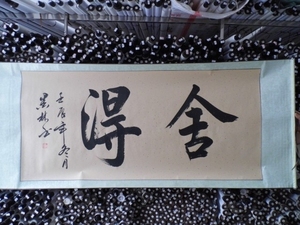 舍得
壬辰年冬月